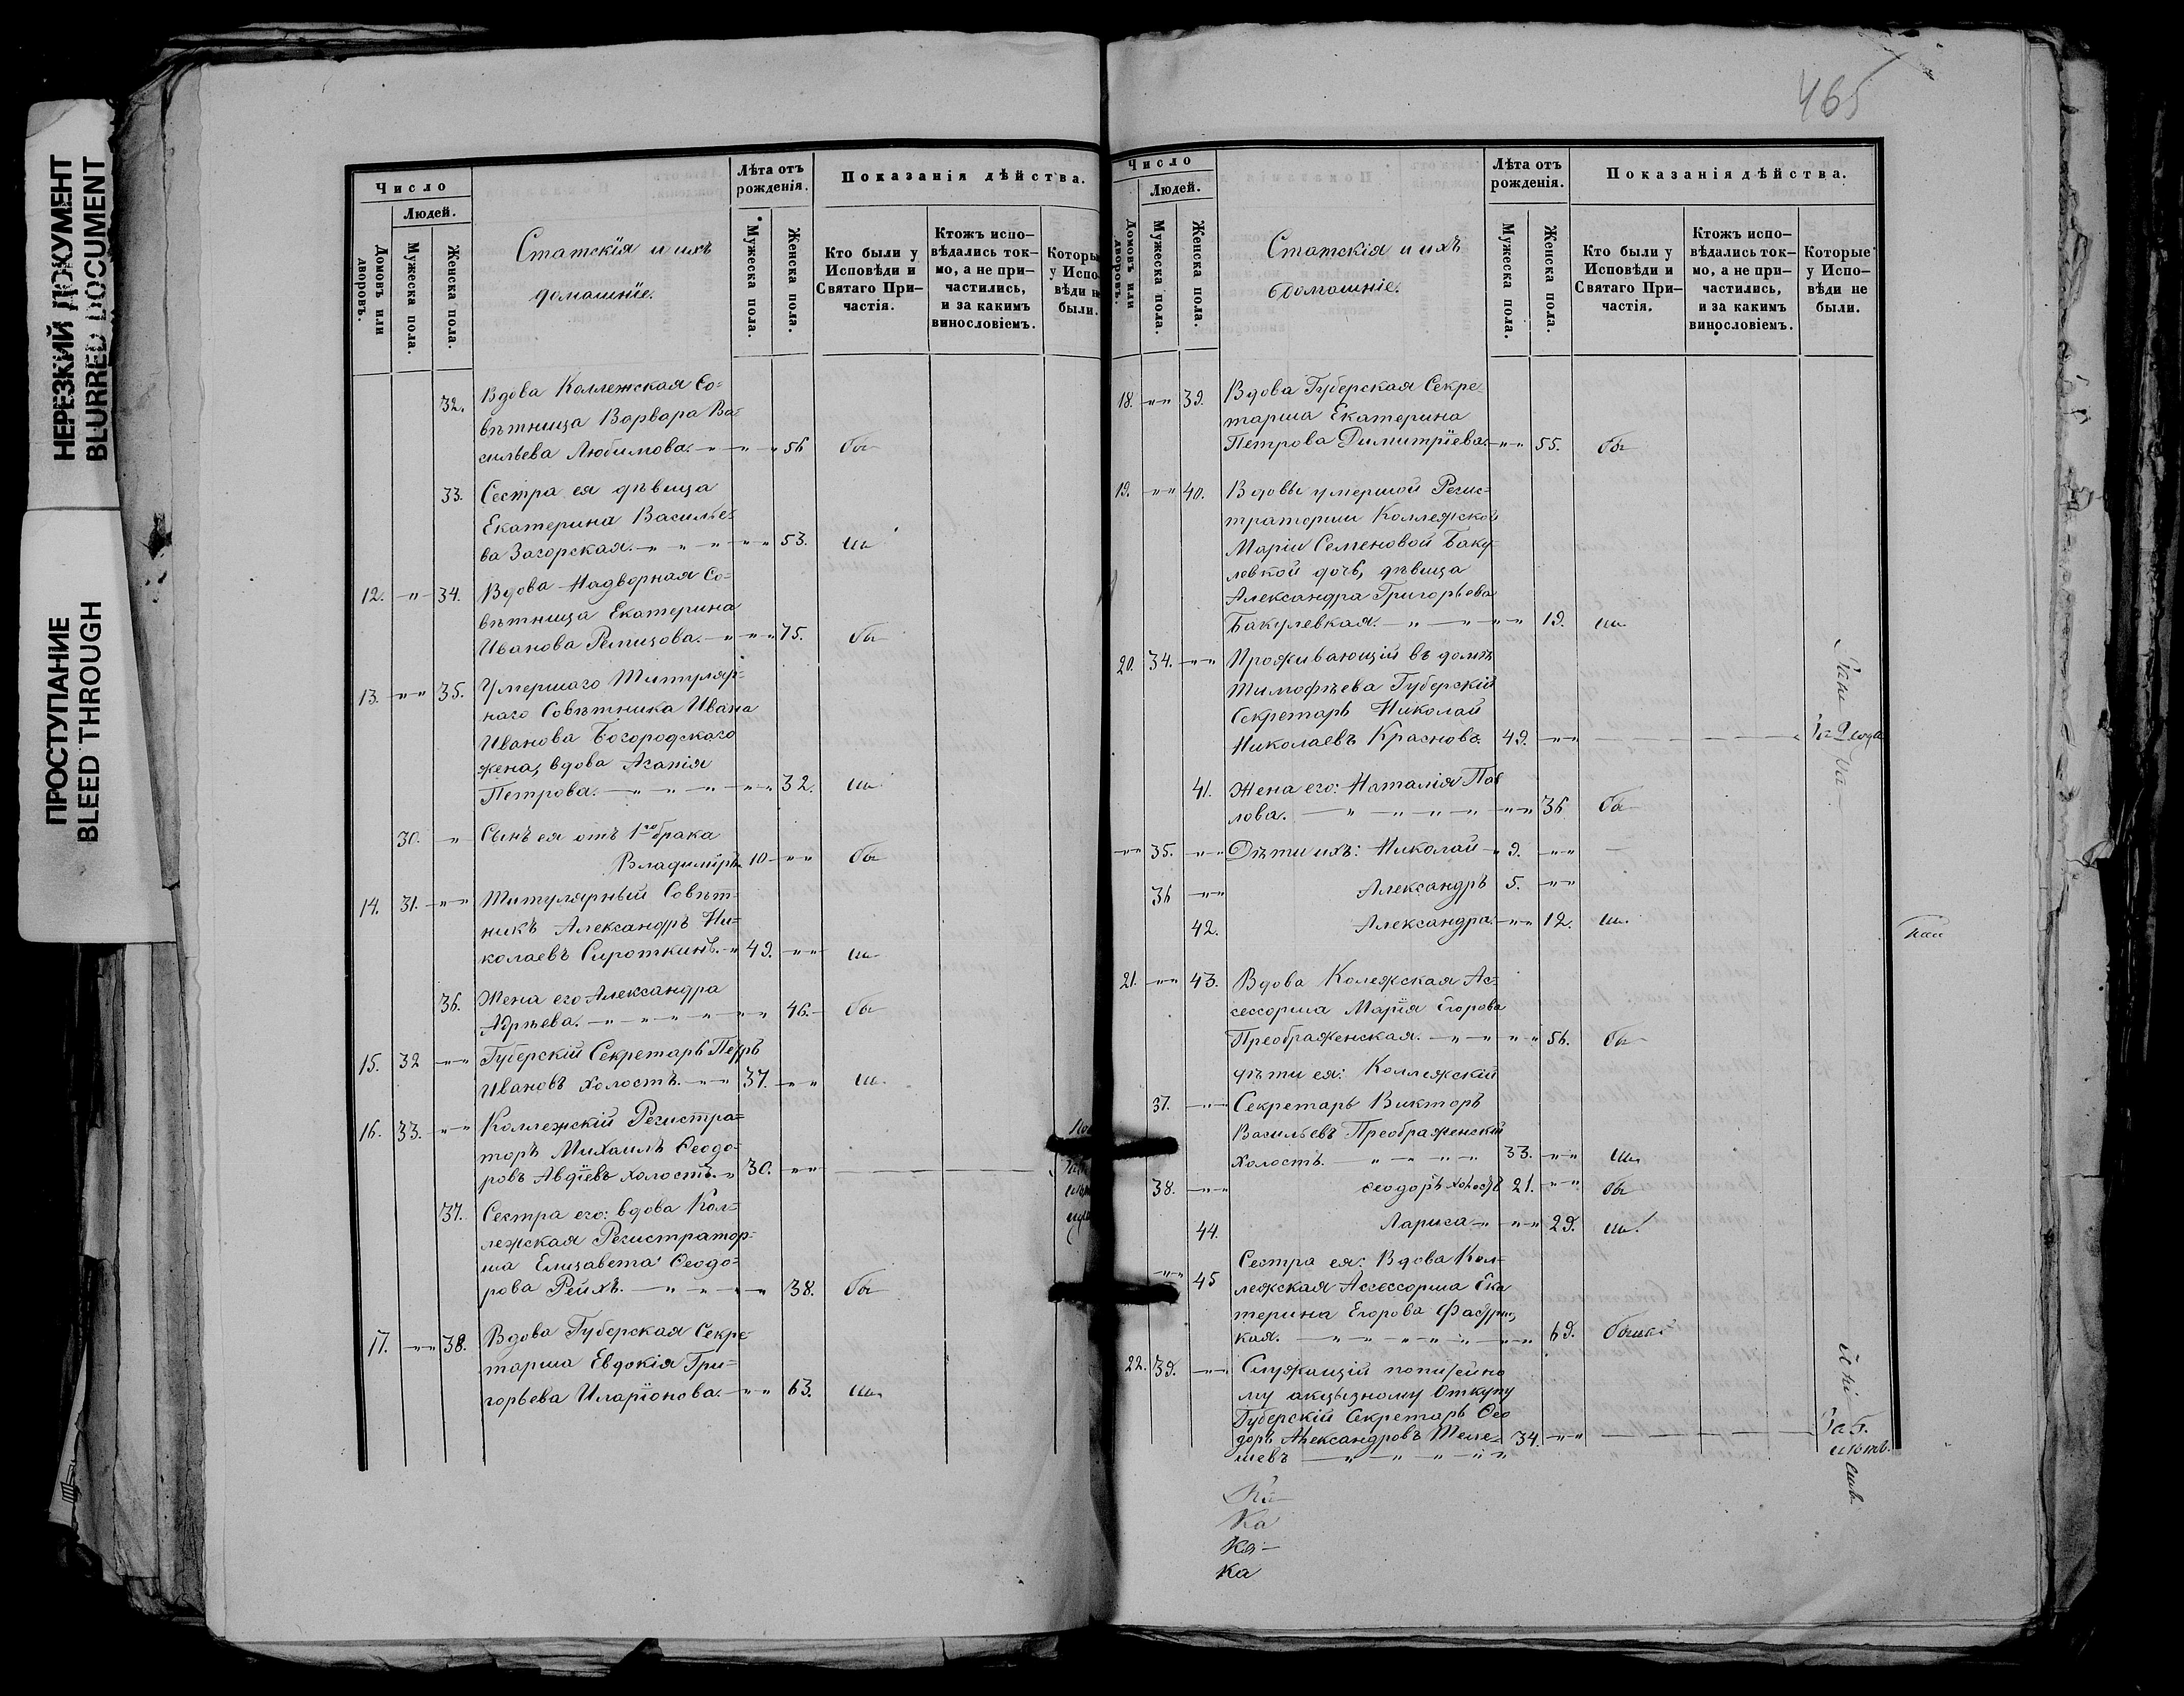 НЕРЕЗКИЙ ДОКУМЕНТ
BLURRED DOCUMENT
ПРОСТУПАНИЕ
BLEED THROUGH
Число
Людей.
Домовъ или дворовъ.
Мужеска пола.
Женска пола.
Статскія и ихъ
домашніе.
Лѣта отъ
рожденія.
Мужеска пола.
Женска пола.
Показанія дѣйства.
Кто были у
Исповѣди и
Святаго При-
частія.
Ктожъ испо-
вѣдались ток-
мо, а не при-
частились,
и за какимъ
винословіемъ.
Которы
у Испо-
вѣди н
были.
32. Вдова Коллежская Со=
вѣтница Варвара Ва=
сильева Любимова. 56 бы
33. Сестра ея дѣвица
Екатерина Василье=
ва Загорская. 53. ли
12. 34. Вдова Надворная Со=
вѣтница Екатерина
Иванова Ремизова. 75. бы
13. 35. Умершаго Титуляр=
наго Совѣтника Ивана
Иванова Богородскаго
жена, вдова Агапія
Петрова. 32. ли
30. Сынъ ея отъ 1го брака
Владиміръ 10 бы
14. 31. Титулярный Совѣт=
никъ Александръ Ни=
колаевъ Сироткинъ. 49. ли
36. Жена его Александра
46. бы
15. 32 Губерскій Секретарь Петръ
Ивановъ холостъ. 37. ли
16. 33. Коллежскій Регистра=
торъ Михаилъ Ѳеодо=
ровъ Авдіевъ холостъ. 30.
37. Сестра его: вдова Кол=
лежская Регистратор=
ша Елизавета Ѳеодо=
рова Рейхъ. 38. бы
17. 38. Вдова Губерская Секре
тарша Евдокія Гри=
горьева Иларіонова. 63. ли
465
Число
Людей.
Домовъ или дворовъ.
Мужеска пола.
Женска пола.
Статскія и ихъ
домашніе.
Лѣта отъ
рожденія.
Мужеска пола.
Женска пола.
Показанія дѣйства.
Кто были у
Исповѣди и
Святаго При-
частія.
Ктожъ испо-
вѣдались ток-
мо, а не при-
частились,
и за какимъ
винословіемъ.
Которые
у Испо-
вѣди не
были.
18. 39. Вдова Губерская Секре=
тарша Екатерина
Петрова Димитріева. 55. бы
19. 40. Вдовы умершой Регис=
траторши Коллежской
Маріи Семеновой Баку=
левкой дочь, дѣвица
Александра Григорьева
Бакулевкая. 19. ли
20. 34. Проживающій въ домѣ
Тимофѣева Губерскій
Секретарь Николай
Николаевъ Красновъ. 49.
41. Жена его: Наталія Пав
лова. 36 бы
35. Дѣти ихъ: Николай 9.
36 Александръ 5.
42. Александра. 12. ли
21. 43. Вдова Колежская Ас=
сессорша Марія Егорова
Преображенская. 56. бы
дѣти ея: Коллежскій
37. Секретарь Викторъ
Васильевъ Преображенскій
холостъ. 33. ли
38. Ѳеодоръ холостъ 21. бы
44. Лариса 29. ли
45 Сестра ея: Вдова Кол=
лежская Ассессорша Ека
терина Егорова
кая. 69. были
22. 39. Служащій
му акцызному Откупу
Губерскій Секретарь Ѳео
доръ Александровъ Теле=
шевъ 34.
Ка
Ка